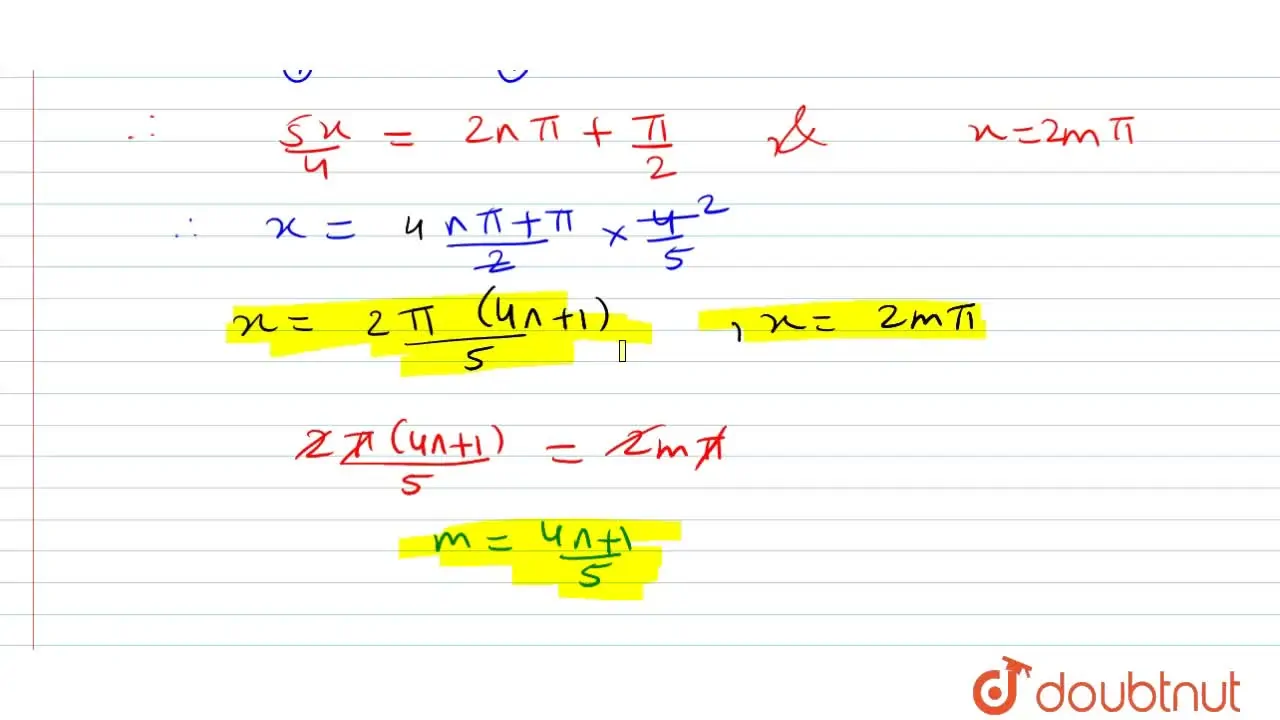 ∴ 5x/4 = 2nπ + π/2 & x = 2mπ
∴ x = 4nπ+π/2 × 4/5 2
x = 2π(4n+1)/5 , x = 2mπ
2π(4n+1)/5 = 2mπ
m = 4n+1/5
doubtnut